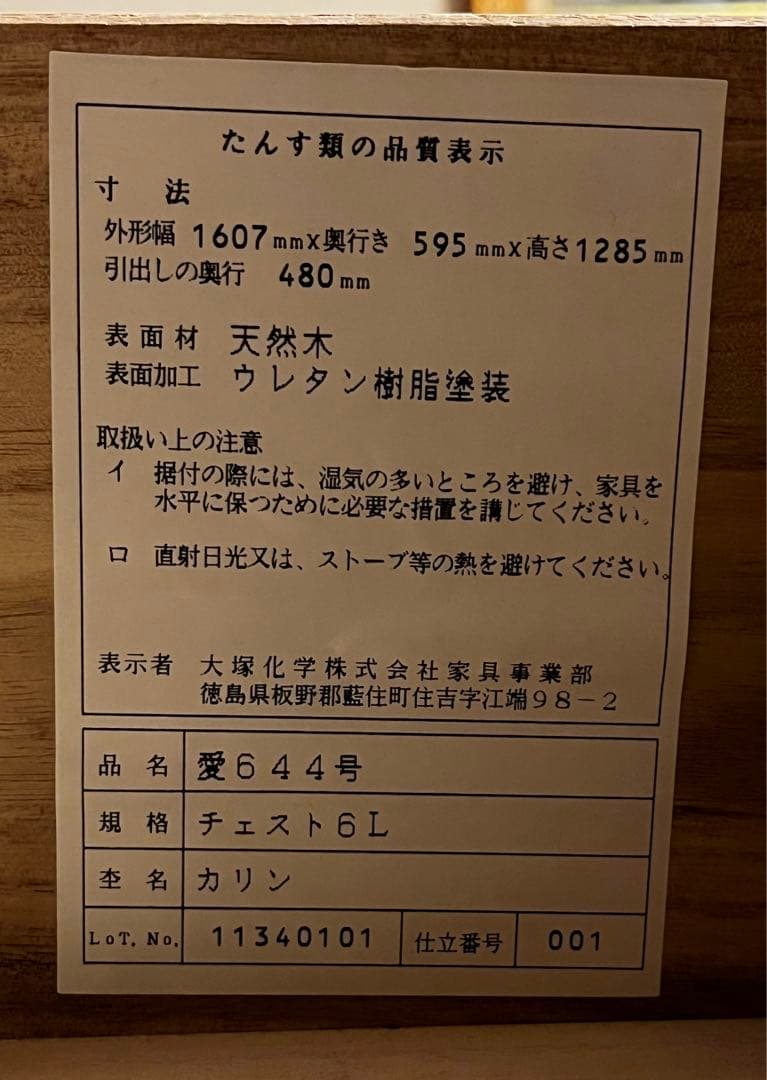 たんす類の品質表示
寸 法
外形幅 1607mm×奥行き 595mm×高さ1285mm
引出しの奥行 480mm
表面材 天然木
表面加工 ウレタン樹脂塗装
取扱い上の注意
イ 据付の際には、湿気の多いところを避け、家具を
水平に保つために必要な措置を講じてください。
ロ 直射日光又は、ストーブ等の熱を避けてください。
表示者 大塚化学株式会社家具事業部
徳島県板野郡藍住町住吉字江端98-2
品名 愛644号
規格 チェスト6L
杢名 カリン
LoT.No. 11340101 仕立番号 001